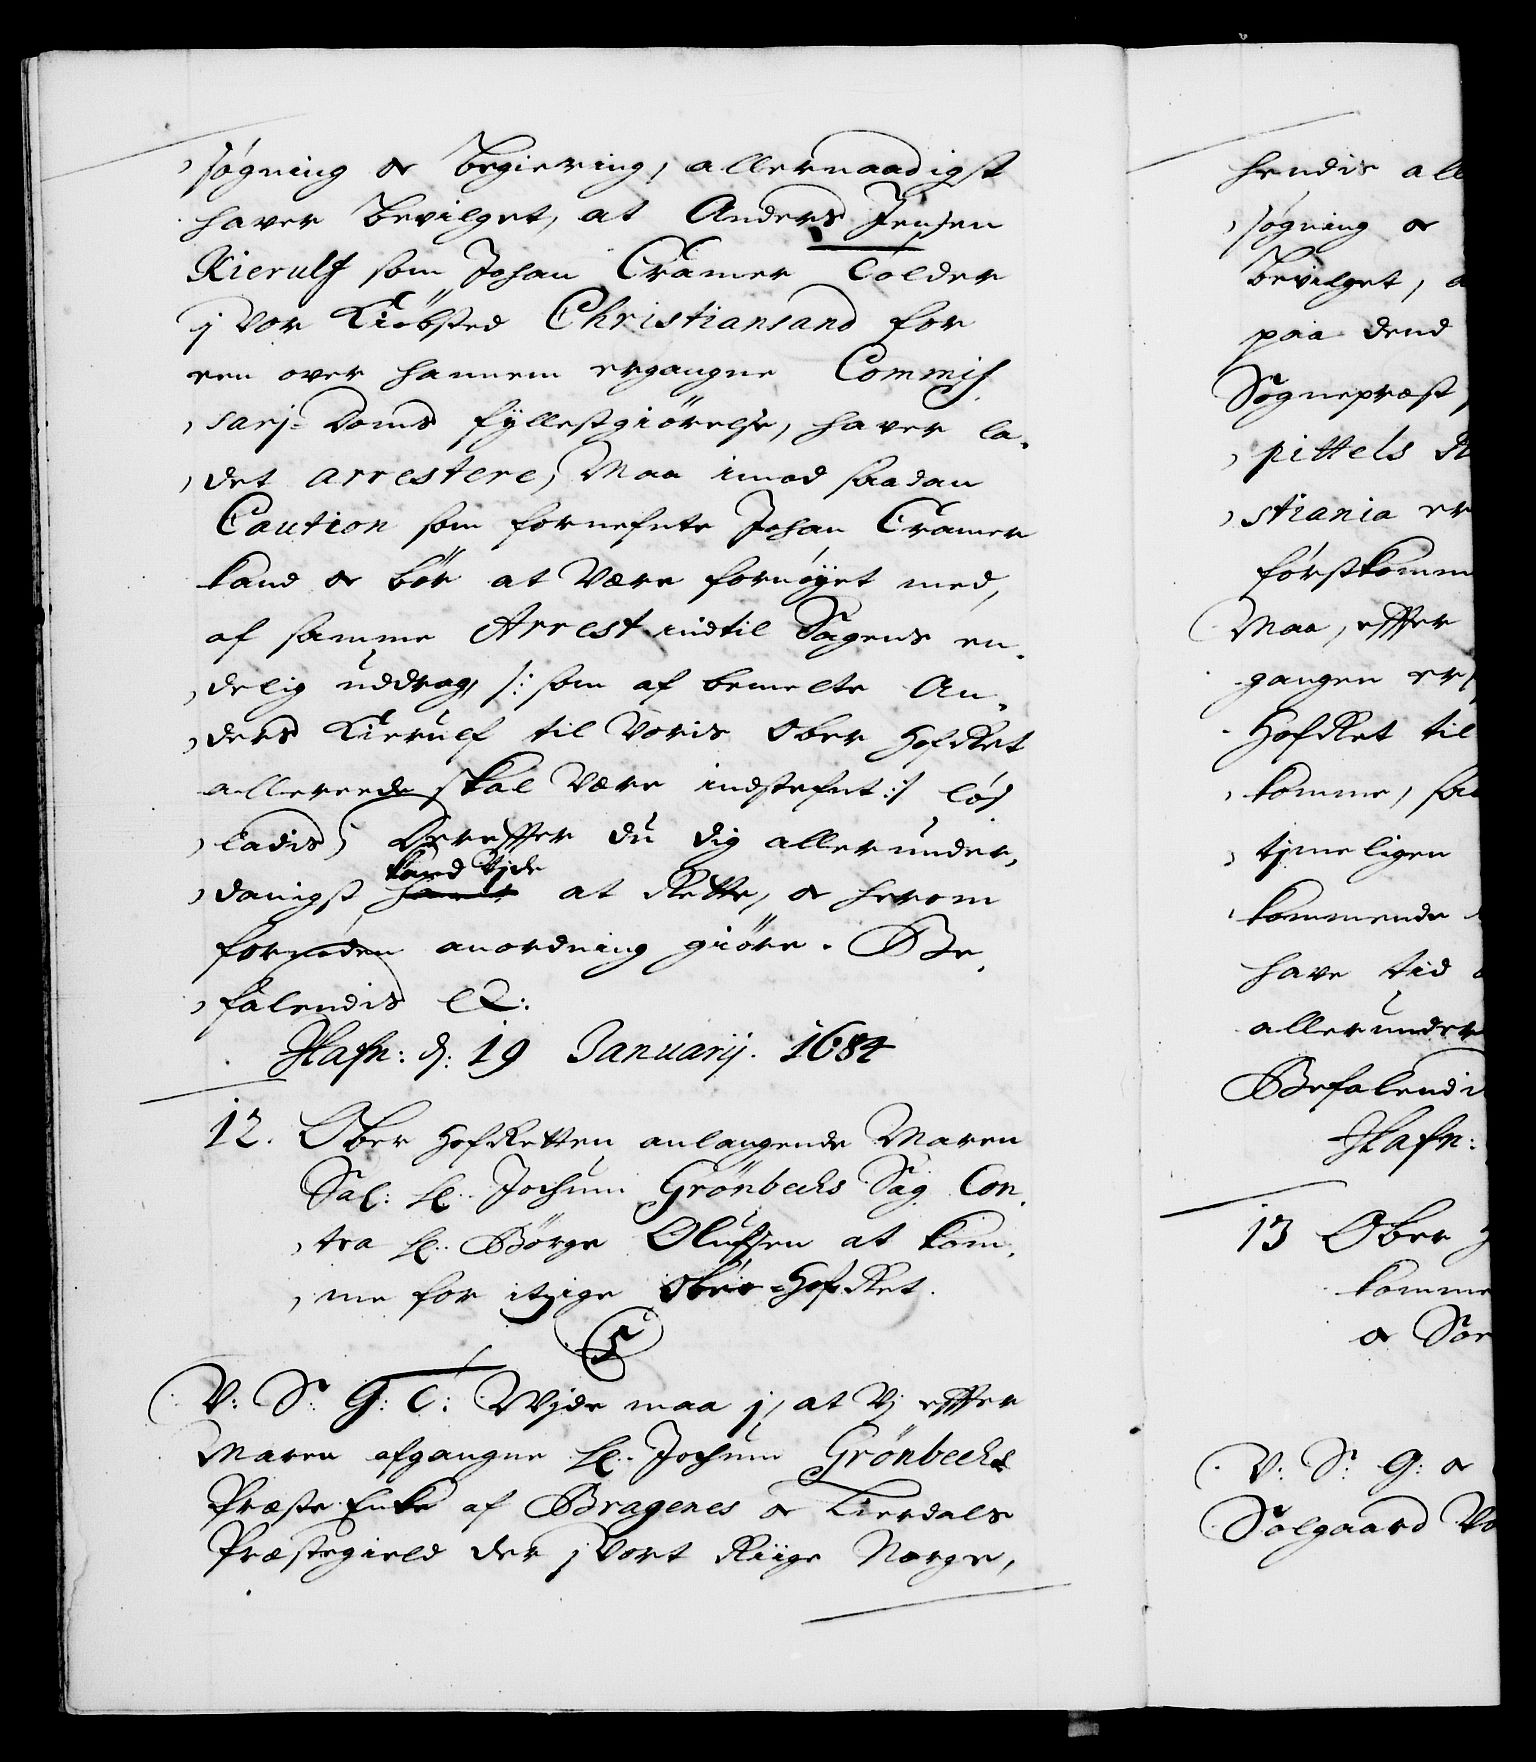 søgning oc begiering, allernaadigst
haver bevilget, at Anders Jensen
Kierulf som Johan Cramer Tolder
j vor Kiöbsted Christiansand for
een over hannem ergangne Commis
sarj-Doms fyllestgiörelse, haver la-
det arrestere, Maa imod saadan
Caution som fornefnte Johan Cramer
kand oc bör at være fornöyet med,
af samme Arrest indtil Sagens en-
delig uddrag, /: som af bemelte An-
ders Kierulf til Voris Ober HofRet
allereede skal være indstefnt :/ löß
ladis, Derefter du dig allerunder-
danigst kand vide at Rette, oc herom
fornöden anordning giöre. Be-
falendis etc:
Hafn: d: 19 Januarij. 1684
12. Ober HofRetten anlangende Maren
Sal: Hr. Jochum Grönbechs Sag Con-
tra Hr. Börge Olufsen at kom-
me for itzige Ober-HofRet.
C5
V: S: G: T: Wide maa j, at Vj efter
Maren afgangne Hr. Jochum Grönbechs
Præste Enke af Bragenes oc Lierdals
Præstegield der j Vort Riige Norge,
hendis all
søgning oc
bevilget, a
paa dend
Sognepræst,
pittels
stiania er
förstkomm
Maa, efter
gangen
HofRet til
komme, saa
timeligen
kommende
have tid
allerunder
Befalendi
Hafn:
13 Ober H
komme
oc Sør
V: S: G: oc
Solgaard Vo